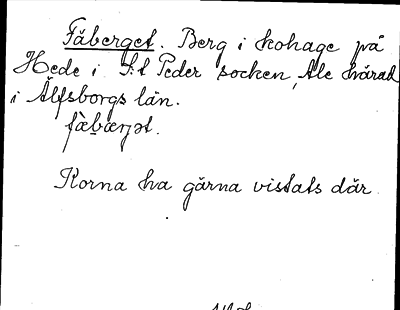 Fäberget. Berg i kohage på
Hede i S:t Peder socken, Ale härad
i Älfsborgs län.
fæ̀bærjət.
Korna ha gärna vistats där.